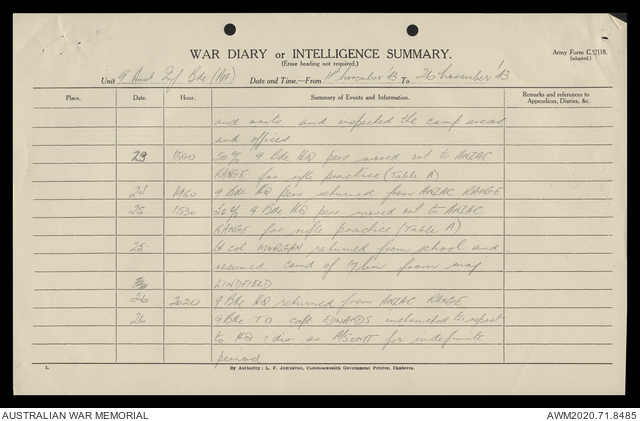 WAR DIARY or INTELLIGENCE SUMMARY.
(Erase heading not required.)
Army Form C.2118.
(adapted.)
Unit 9 Aust Inf Bde (AIF) Date and Time.—From 1st November '43 To 26 November '43
Place. Date. Hour. Summary of Events and Information. Remarks and references to Appendices, Diaries, &c.
and units and inspected the camp areas
and offices
23 1500 50% 9 Bde HQ pers moved out to ANZAC
RANGE for rifle practice (Table A)
9 Bde HQ pers returned from ANZAC RANGE
25 1530 50% 9 Bde HQ pers moved out to ANZAC
RANGE for rifle practice (Table A)
25 Lt Col MORGAN returned from school and
resumed comd of 17 bn from maj
LINDFIELD
26 2020 9 Bde HQ returned from ANZAC RANGE
26 9 Bde TO capt EDWARDS instructed to report
to HQ 1 div as for indefinite
period
L. By Authority: L. F. Johnston, Commonwealth Government Printer, Canberra.
AUSTRALIAN WAR MEMORIAL AWM2020.71.8485